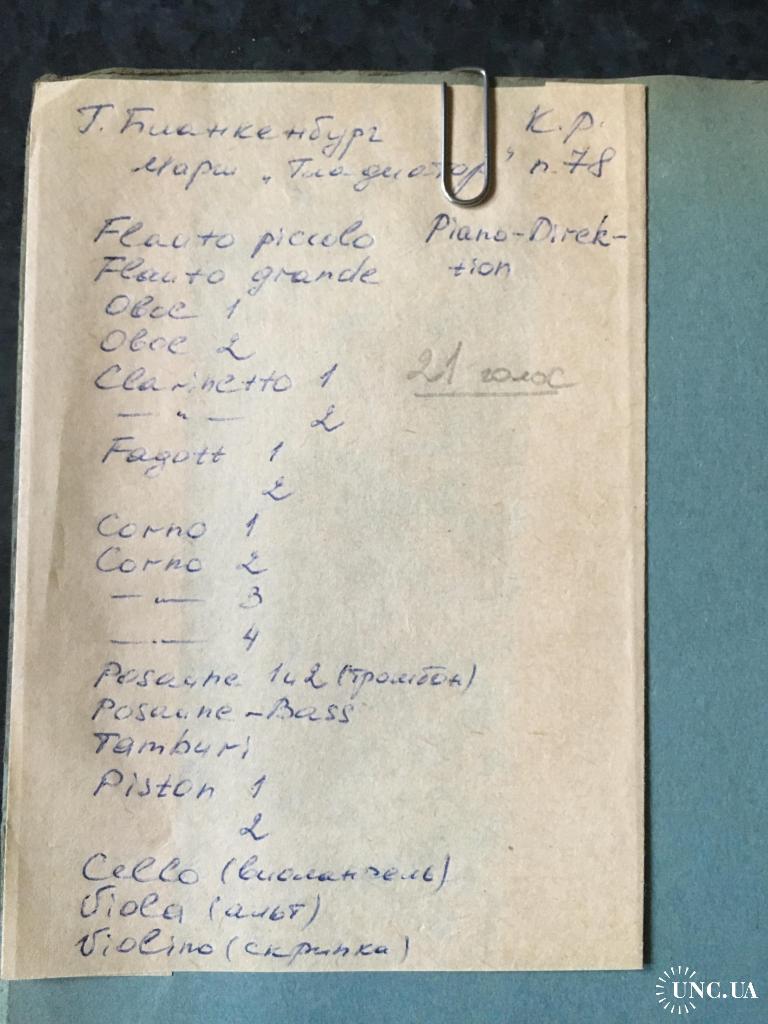 Г. Бланкенбург К.Р.
Марш „Гладиатор" п. 78
Flauto piccolo Piano-Direk-
Flauto grande tion
Oboe 1
Oboe 2
21 голос
Clarinetto 1
— " — 2
Fagott 1
2
Corno 1
Corno 2
— " — 3
— " — 4
Posaune 1 и 2 (тромбон)
Posaune-Bass
Tamburi
Piston 1
2
Cello (виолончель)
Viola (альт)
Violino (скрипка)
UNC.UA